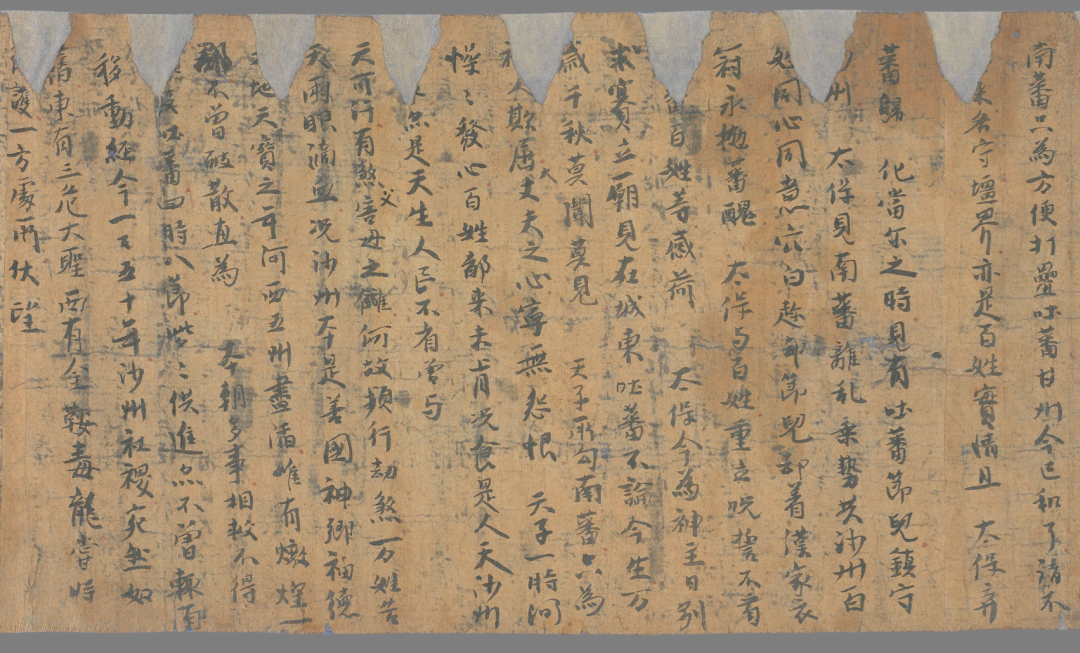 南蕃只為方便打疊吐蕃甘州今已和了請不
来各守壃界亦是百姓實情且 太保弃
蕃歸 化當尔之時見有吐蕃節兒鎮守
州 太保見南蕃離乱乘勢共沙州百
姓同心同意穴白趂却節兒却着漢家衣
永抛蕃醜 太保与百姓重立咒誓不着
百姓等感荷 太保今為神主日别
求賽立廟見在城東吐蕃不論今生万
歲千秋莫聞莫見 天子所勾南蕃只為
被人欺屈大丈夫之心寧無怨恨 天子一時間
懆々發心百姓都来未肯况食是人天沙州
亦是天生人民不省曾与
天可汗有煞害父母之讎何故頻行劫煞万姓告
天兩眼滴血况沙州本是善國神鄉福德
之地天寶之年河西五州盡陷唯有燉煌一
郡不曾破散直為 本朝多事相救不得
没吐蕃四時八節些々供進亦不曾輒有
移動經今一百五十年沙州社稷宛然如
舊東有三危大聖西有金鞍毒龍嘗時
護一方處所伏望